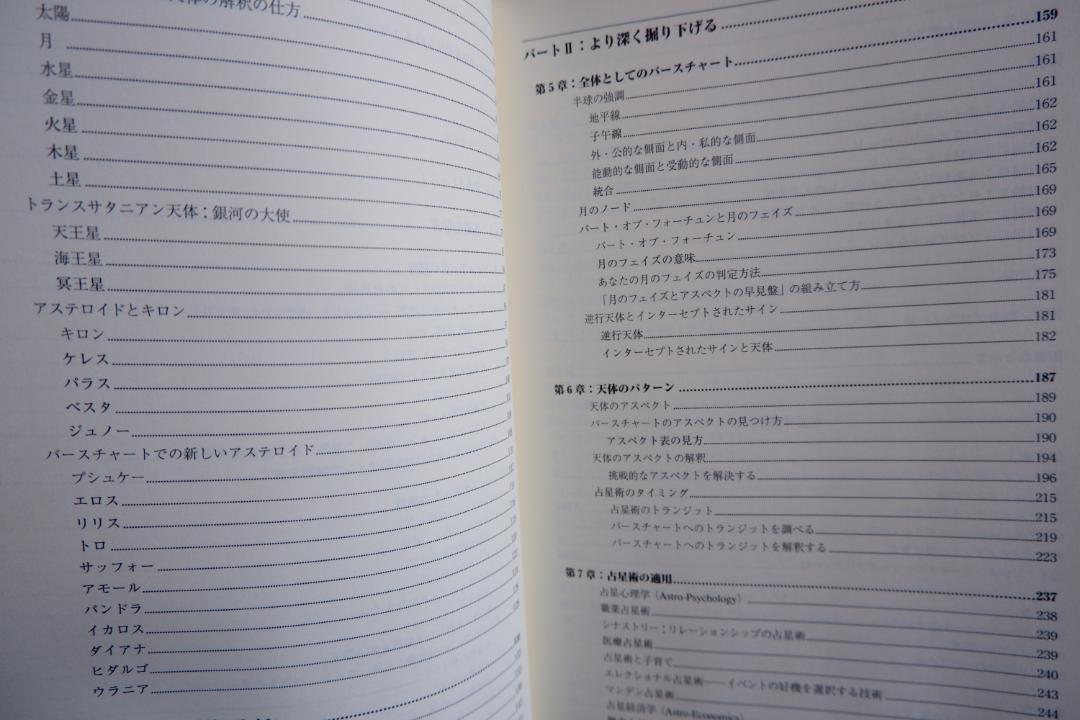 の解釈の仕方
太陽
月
水星
金星
火星
木星
土星
トランスサタニアン天体：銀河の大使
天王星
海王星
冥王星
アステロイドとキロン
キロン
ケレス
パラス
ベスタ
ジュノー
バースチャートでの新しいアステロイド
プシュケー
エロス
リリス
トロ
サッフォー
アモール
パンドラ
イカロス
ダイアナ
ヒダルゴ
ウラニア
パートⅡ：より深く掘り下げる 159
第5章：全体としてのバースチャート 161
半球の強調 161
地平線 161
子午線 162
外・公的な側面と内・私的な側面 162
能動的な側面と受動的な側面 162
統合 165
月のノード 169
パート・オブ・フォーチュンと月のフェイズ 169
パート・オブ・フォーチュン 169
月のフェイズの意味 173
あなたの月のフェイズの判定方法 175
「月のフェイズとアスペクトの早見盤」の組み立て方 181
逆行天体とインターセプトされたサイン 181
逆行天体 182
インターセプトされたサインと天体
第6章：天体のパターン 187
天体のアスペクト 189
バースチャートのアスペクトの見つけ方 190
アスペクト表の見方 190
天体のアスペクトの解釈 194
挑戦的なアスペクトを解決する 196
占星術のタイミング 215
占星術のトランジット 215
バースチャートへのトランジットを調べる 219
バースチャートへのトランジットを解釈する 223
第7章：占星術の適用 237
占星心理学（Astro-Psychology） 238
職業占星術 239
シナストリー：リレーションシップの占星術 239
医療占星術 240
占星術と子育て 243
エレクショナル占星術──イベントの好機を選択する技術 244
マンデン占星術
占星経済学（Astro-Economics）